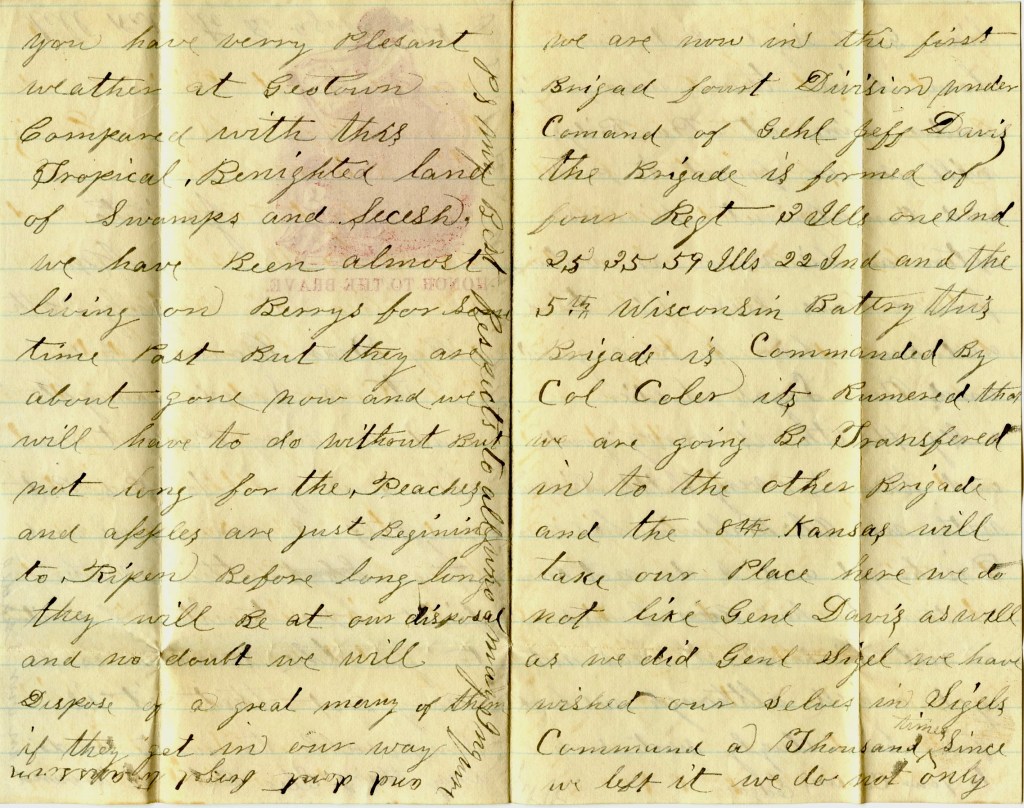 you have verry Plesant
weather at Geotown
Compared with this
Tropical, Benighted land
of Swamps and Secesh,
we have Been almost
living on Berrys for some
time Past But they are
about gone now and we
will have to do without But
not long for the Peaches
and apples are just Begining
to Ripen Before long long
they will Be at our disposal
and no doubt we will
Dispose of a great many of them
if they get in our way
and dont forget to
PS my Best Respects to all who may
HONOR TO THE BRAVE.
we are now in the first
Brigad fourt Division under
Comand of Genl Jeff Davis
the Brigade is formed of
four Regt 3 Ills one Ind
25 35 59 Ills 22 Ind and the
5th Wisconsin Battry this
Brigade is Commanded By
Col Coler its Rumered that
we are going Be Transfered
in to the other Brigade
and the 8th Kansas will
take our Place here we do
not like Genl Davis as well
as we did Genl Sigel we have
wished our Selves in Sigels
Command a Thousand times Since
we left it we do not only